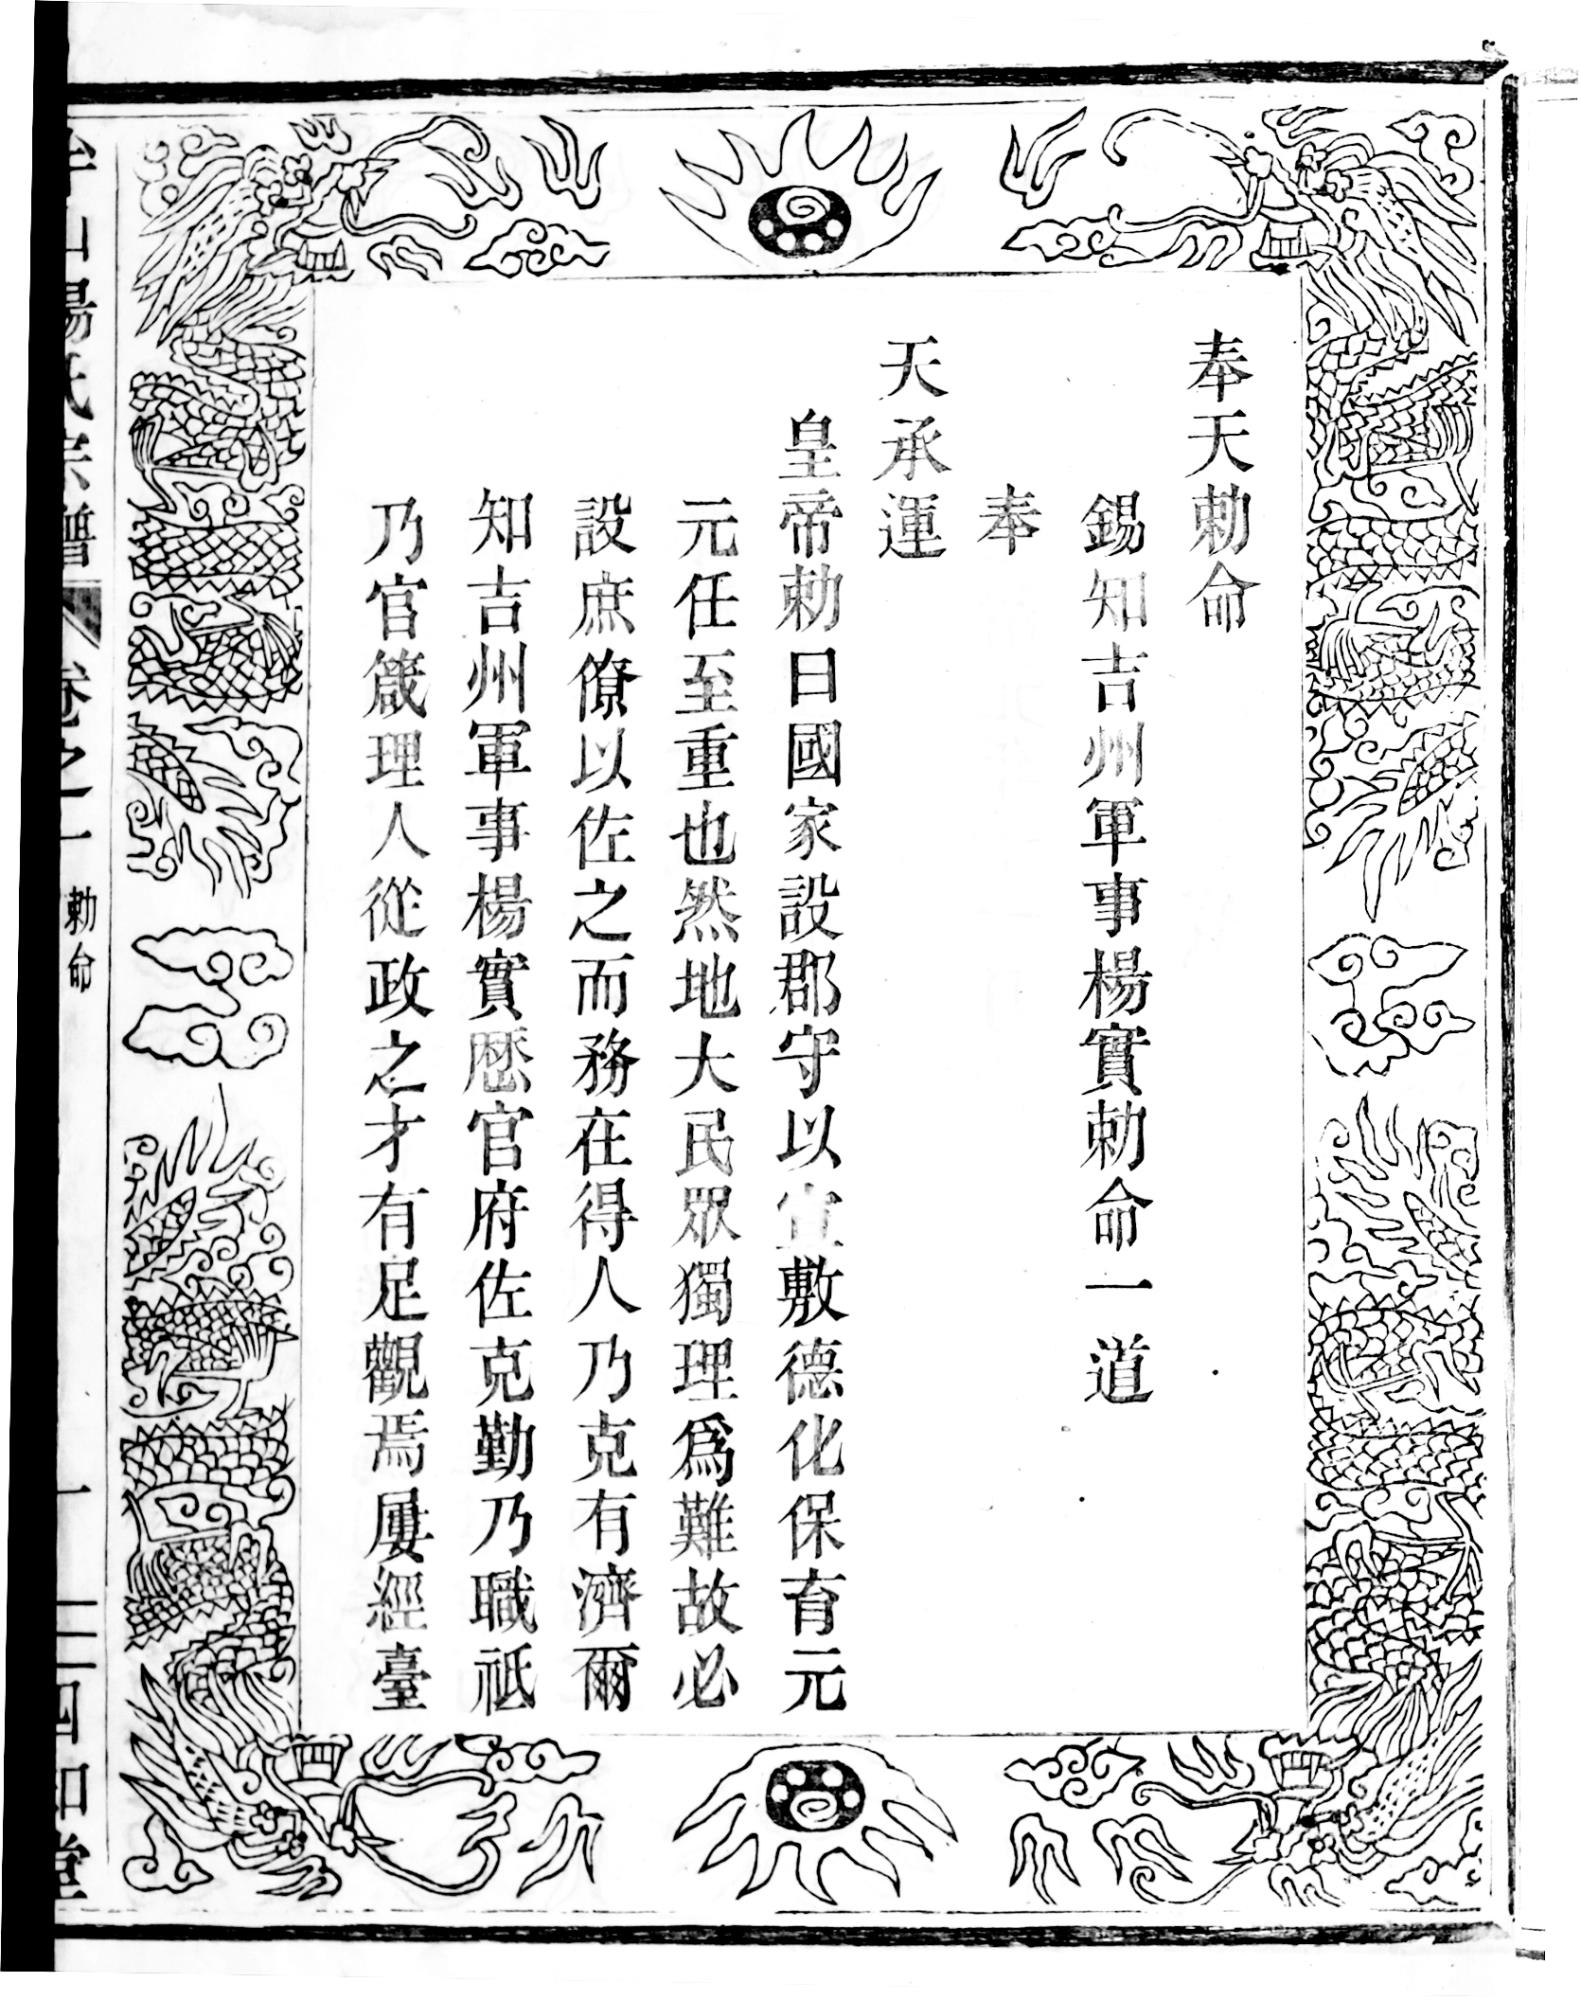 奉天勅命
錫知吉州軍事楊實勅命一道
奉
天承運
皇帝勅曰國家設郡守以宣敷德化保育元
元任至重也然地大民眾獨理爲難故必
設庶僚以佐之而務在得人乃克有濟爾
知吉州軍事楊實歷官府佐克勤乃職祗
乃官箴理人從政之才有足觀焉屢經臺
山楊氏宗譜 卷之一 勅命 四知堂